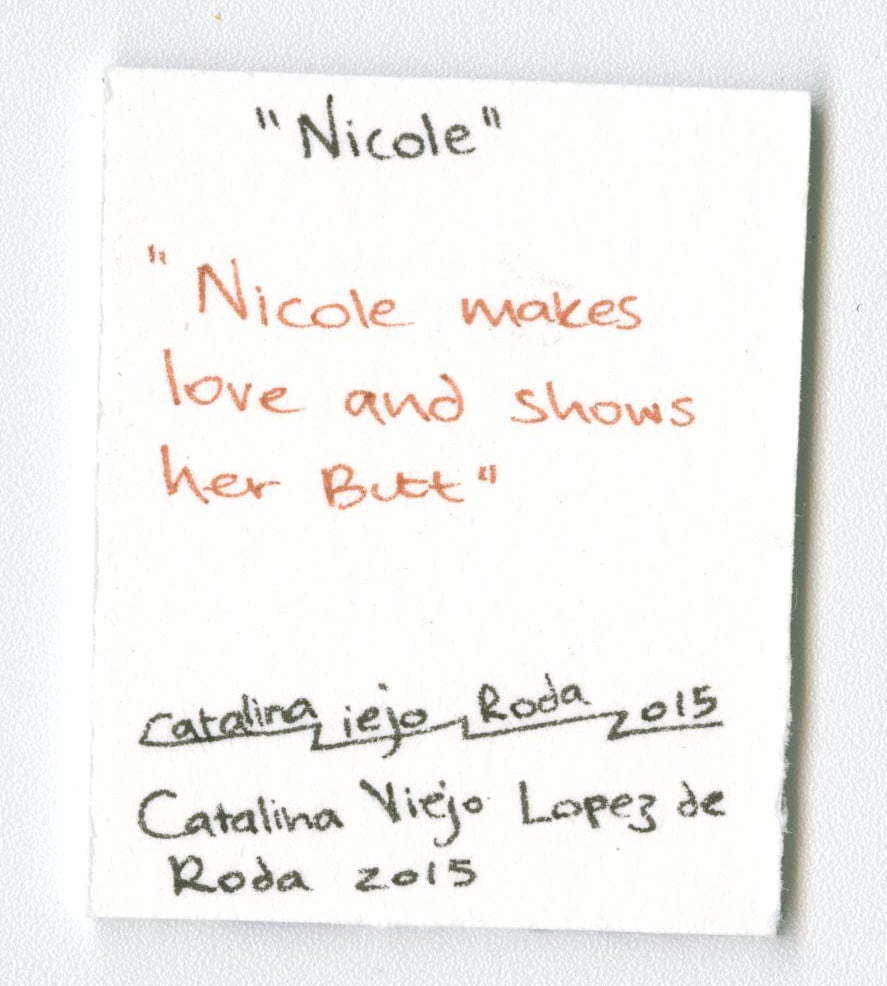 "Nicole"
"Nicole makes
love and shows
her Butt"
Catalina Viejo Roda 2015
Catalina Viejo Lopez de
Roda 2015